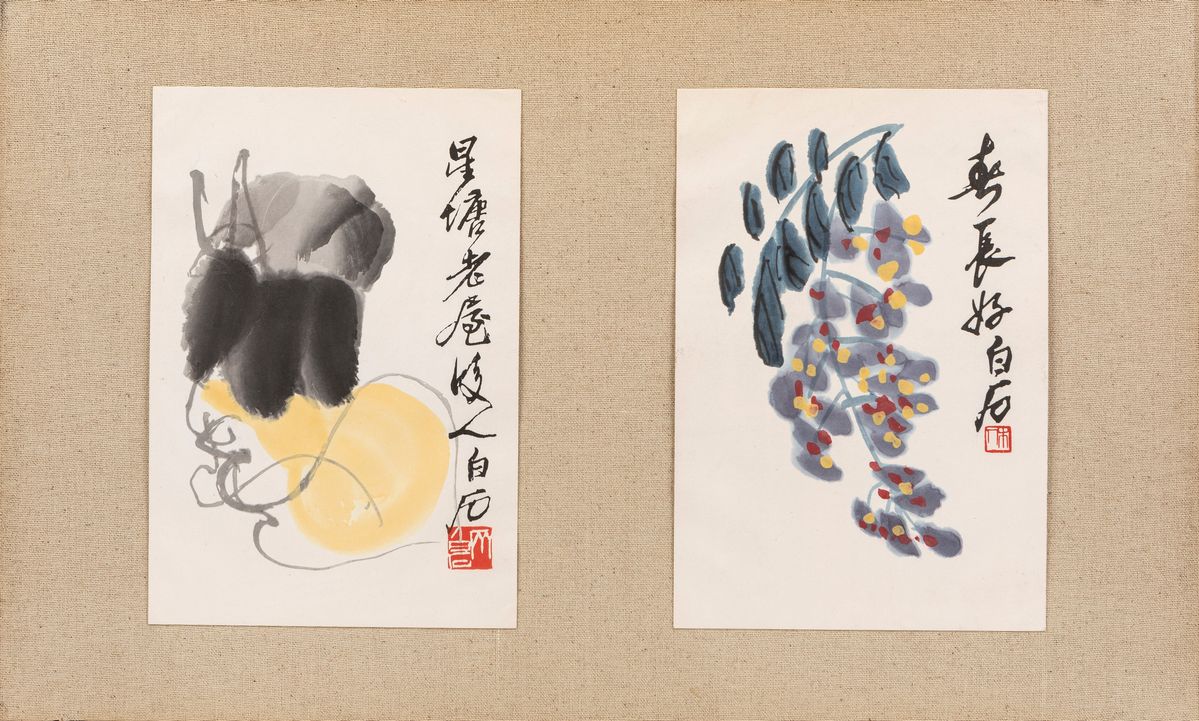 星塘老屋後人白石
春長好白石
木人